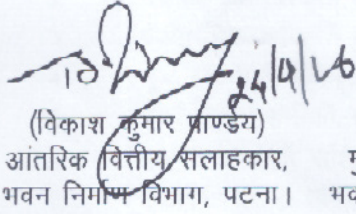 24/4/26
(विकाश कुमार पाण्डेय)
आंतरिक वित्तीय सलाहकार,
भवन निर्माण विभाग, पटना। भव